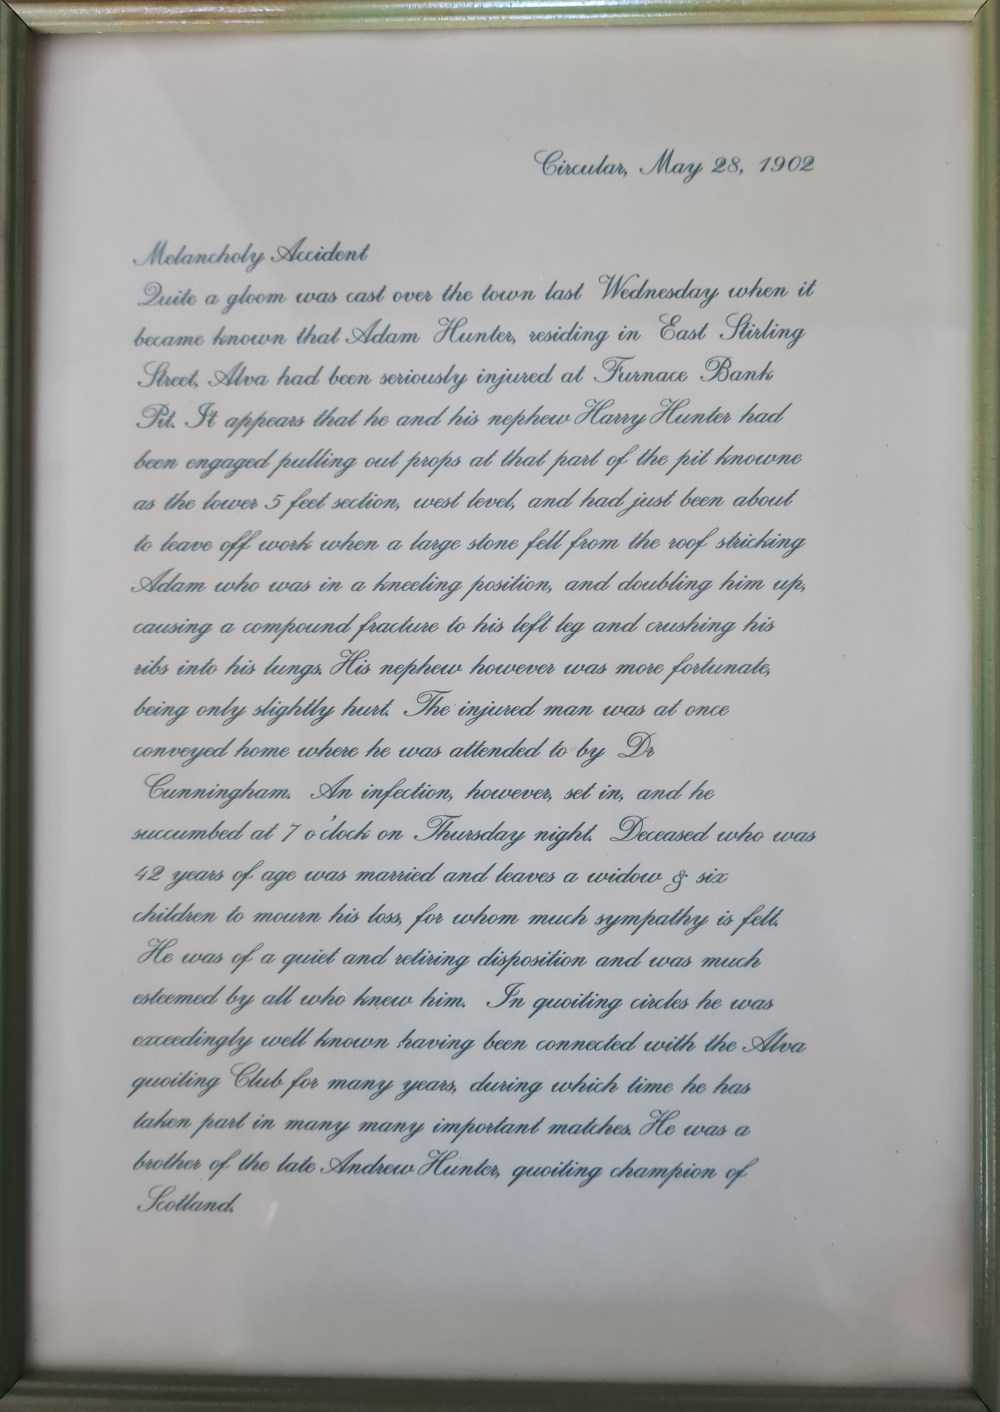 Circular, May 28, 1902
Melancholy Accident
Quite a gloom was cast over the town last Wednesday when it
became known that Adam Hunter, residing in East Stirling
Street, Alva had been seriously injured at Furnace Bank
Pit. It appears that he and his nephew Harry Hunter had
been engaged pulling out props at that part of the pit knowne
as the lower 5 feet section, west level, and had just been about
to leave off work when a large stone fell from the roof stricking
Adam who was in a kneeling position, and doubling him up,
causing a compound fracture to his left leg and crushing his
ribs into his lungs. His nephew however was more fortunate,
being only slightly hurt. The injured man was at once
conveyed home where he was attended to by Dr
Cunningham. An infection, however, set in, and he
succumbed at 7 o'clock on Thursday night. Deceased who was
42 years of age was married and leaves a widow & six
children to mourn his loss, for whom much sympathy is felt.
He was of a quiet and retiring disposition and was much
esteemed by all who knew him. In quoiting circles he was
exceedingly well known having been connected with the Alva
quoiting Club for many years, during which time he has
taken part in many many important matches. He was a
brother of the late Andrew Hunter, quoiting champion of
Scotland.